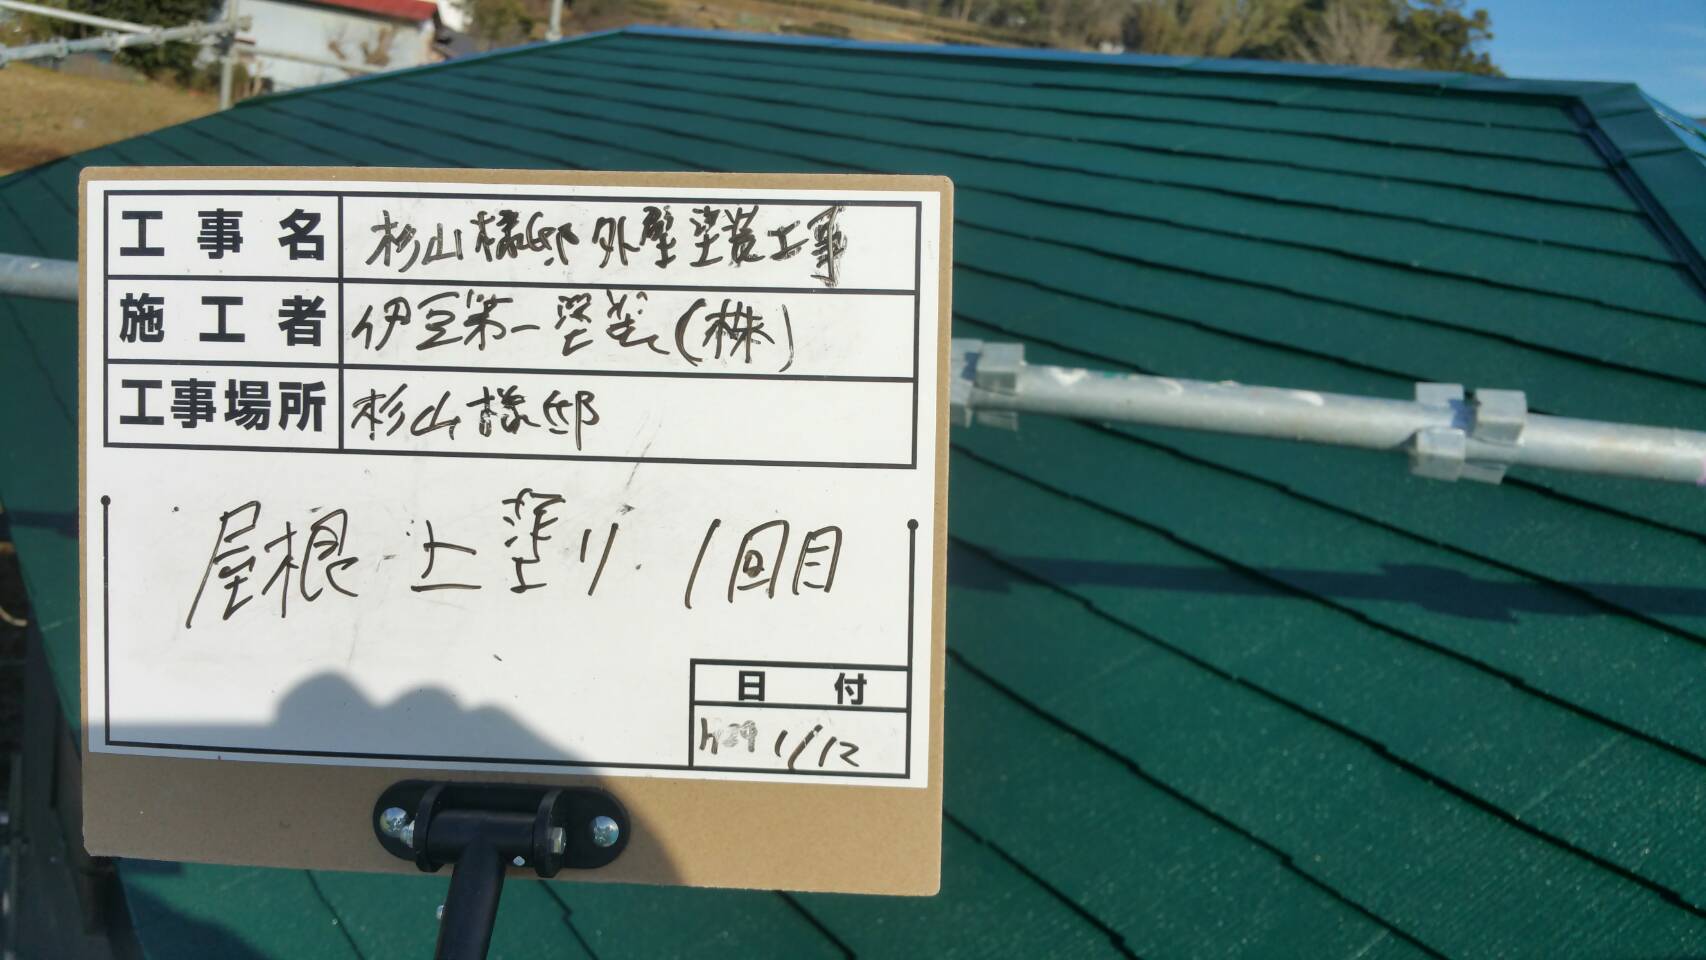 工事名 杉山様邸外壁塗装工事
施工者 伊豆第一塗装(株)
工事場所 杉山様邸
屋根 上塗り 1回目
日付
h29 1/12